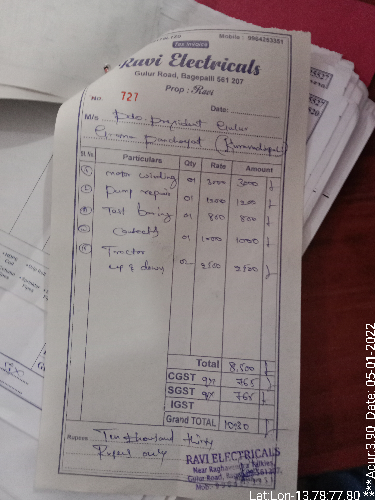 Mobile : 9964253351
Tax Invoice
Ravi Electricals
Gulur Road, Bagepalli 561 207
Prop : Ravi
No. 727 Date:
M/s P.D.O. president Gulur
Grama panchayat
Sl.No. Particulars Qty Rate Amount
motor winding 01 3000 3000
pump repair 01 1200 1200
01 800 800
contacts 01 1000 1000
Tractor
up & down 01 2500 2500
Total 8,500
CGST 9% 765
SGST 9% 765
IGST
Grand TOTAL 10030
Rupees Ten thousand thirty
Rupees only
RAVI ELECTRICALS
Near Raghavendra Talkies,
Gulur Road, Bagepalli-561207,
Lat:Lon-13.78:77.80
***Acur:3.90 Date: 05-01-2022